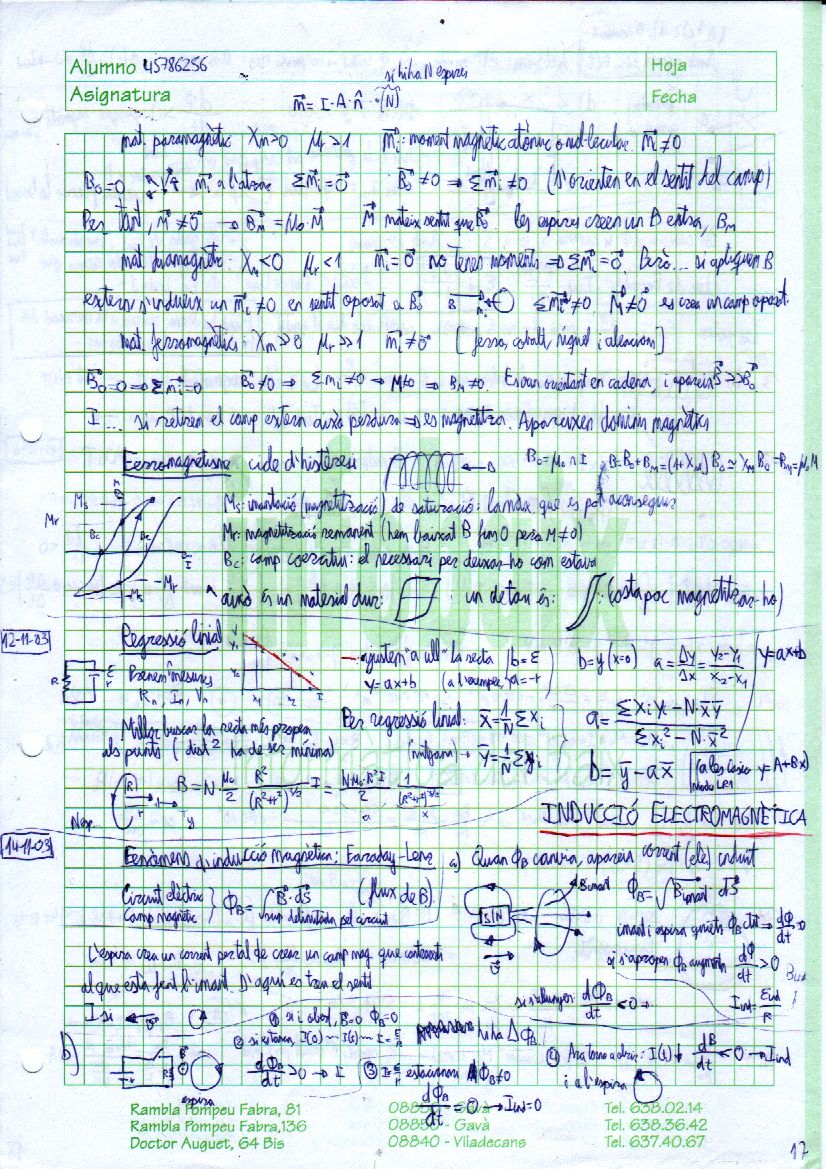 Alumno 45786256
Hoja
si hi ha N espires
Asignatura
Fecha
m⃗ = I·A·n̂ ·(N)
mat. paramagnètic Xm>0 μr>1 m⃗i: moment magnètic atòmic o mol·lecular. m⃗i≠0
B0=0 m⃗i a l'atzar Σm⃗i=0⃗ B⃗0≠0 ⇒ Σm⃗i≠0 (S'orienten en el sentit del camp)
Per tant, M⃗≠0⃗ → B⃗m=μ0·M⃗ M⃗ mateix sentit que B⃗0. les espires creen un B extra, BM
mat. diamagnètic: Xm<0 μr<1 m⃗i=0⃗ no tenen moments ⇒ Σm⃗i=0⃗. Però... si apliquem B
extern s'indueix un m⃗i≠0 en sentit oposat a B⃗0 Σm⃗i≠0 M⃗≠0⃗ es crea un camp oposat.
mat. ferromagnètics: Xm>>0 μr>>1 m⃗i≠0⃗ [ferro, cobalt, níquel i aleacions]
B⃗0=0 ⇒ Σm⃗i=0 B⃗0≠0 ⇒ Σmi≠0 → M≠0 ⇒ BM≠0. Es van orientant en cadena, i apareix B⃗>>B⃗0.
I... si retirem el camp extern això perdura ⇒ es magnetitza. Apareixen dominis magnètics
Ferromagnetisme: cicle d'histèresi
B0=μ0 n I B=B0+BM=(1+XM)B0≃XM B0=BM=μ0M
Ms: imantació (magnetització) de saturació: la màx que es pot aconseguir
Mr: magnetització remanent (hem baixat B fins 0 però M≠0)
Bc: camp coercitiu: el necessari per deixar-ho com estava
això és un material dur: un de tou és: (costa poc magnetitzar-ho)
12-11-03
Regressió linial
Prenem "mesures
Rn, In, Vn
ajustem "a ull" la recta
y=ax+b (a l'exemple,
b=ε
a=-r
b=y(x=0) a=Δy/Δx=(y2-y1)/(x2-x1) y=ax+b
Millor buscar la recta més propera
als punts (dist² ha de ser mínima)
Per regressió linial: x̄=1/N Σxi
(mitjana) → ȳ=1/N Σyi
a=(Σxiyi-N·x̄ȳ)/(Σxi²-N·x̄²)
b=ȳ-ax̄ y=A+Bx
B=N·μ0/2 R²/(R²+r²)^3/2 I=N·μ0·R²I/2 1/(R²+r²)^3/2
INDUCCIÓ ELECTROMAGNÈTICA
14-11-03
Fenòmens d'inducció magnètica: Faraday-Lenz
a) Quan ΦB canvia, apareix corrent (elec) induït
Circuit elèctric
Camp magnètic
ΦB=∫B⃗·dS⃗ (flux de B).
sup delimitada pel circuit
S|N
B imant
ΦB=∫B⃗imant dS⃗
imant i espira quiets ΦB ctt → dΦ/dt=0
si s'apropen ΦB augmenta dΦ/dt>0
L'espira crea un corrent per tal de crear un camp mag. que contraresti
al que està fent l'imant. D'aquí es treu el sentit
si s'allunyen dΦB/dt<0 →
Iind=εind/R
I si
b)
① si i obert, B=0 ΦB=0
② si es tanca, I(0) ~ I(t) ~ I=ε/R hi ha ΔΦB
espira
dΦB/dt>0 → I
③ I=ε/r estacionari ΦB≠0
dΦB/dt=0 → Iind=0
④ Ara torno a obrir: I(t)↓ dB/dt<0 → Iind
i a l'espira
Rambla Pompeu Fabra, 81 08850 - Gavà Tel. 638.02.14
Rambla Pompeu Fabra,136 08850 - Gavà Tel. 638.36.42
Doctor Auguet, 64 Bis 08840 - Viladecans Tel. 637.40.67
17